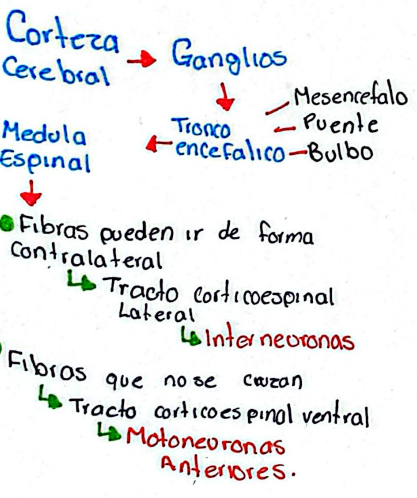 Corteza Cerebral
Ganglios
Mesencefalo
Puente
Bulbo
Tronco encefalico
Medula Espinal
Fibras pueden ir de forma
contralateral
Tracto corticoespinal
Lateral
Interneuronas
Fibras que no se cruzan
Tracto corticoespinal ventral
Motoneuronas
Anteriores.